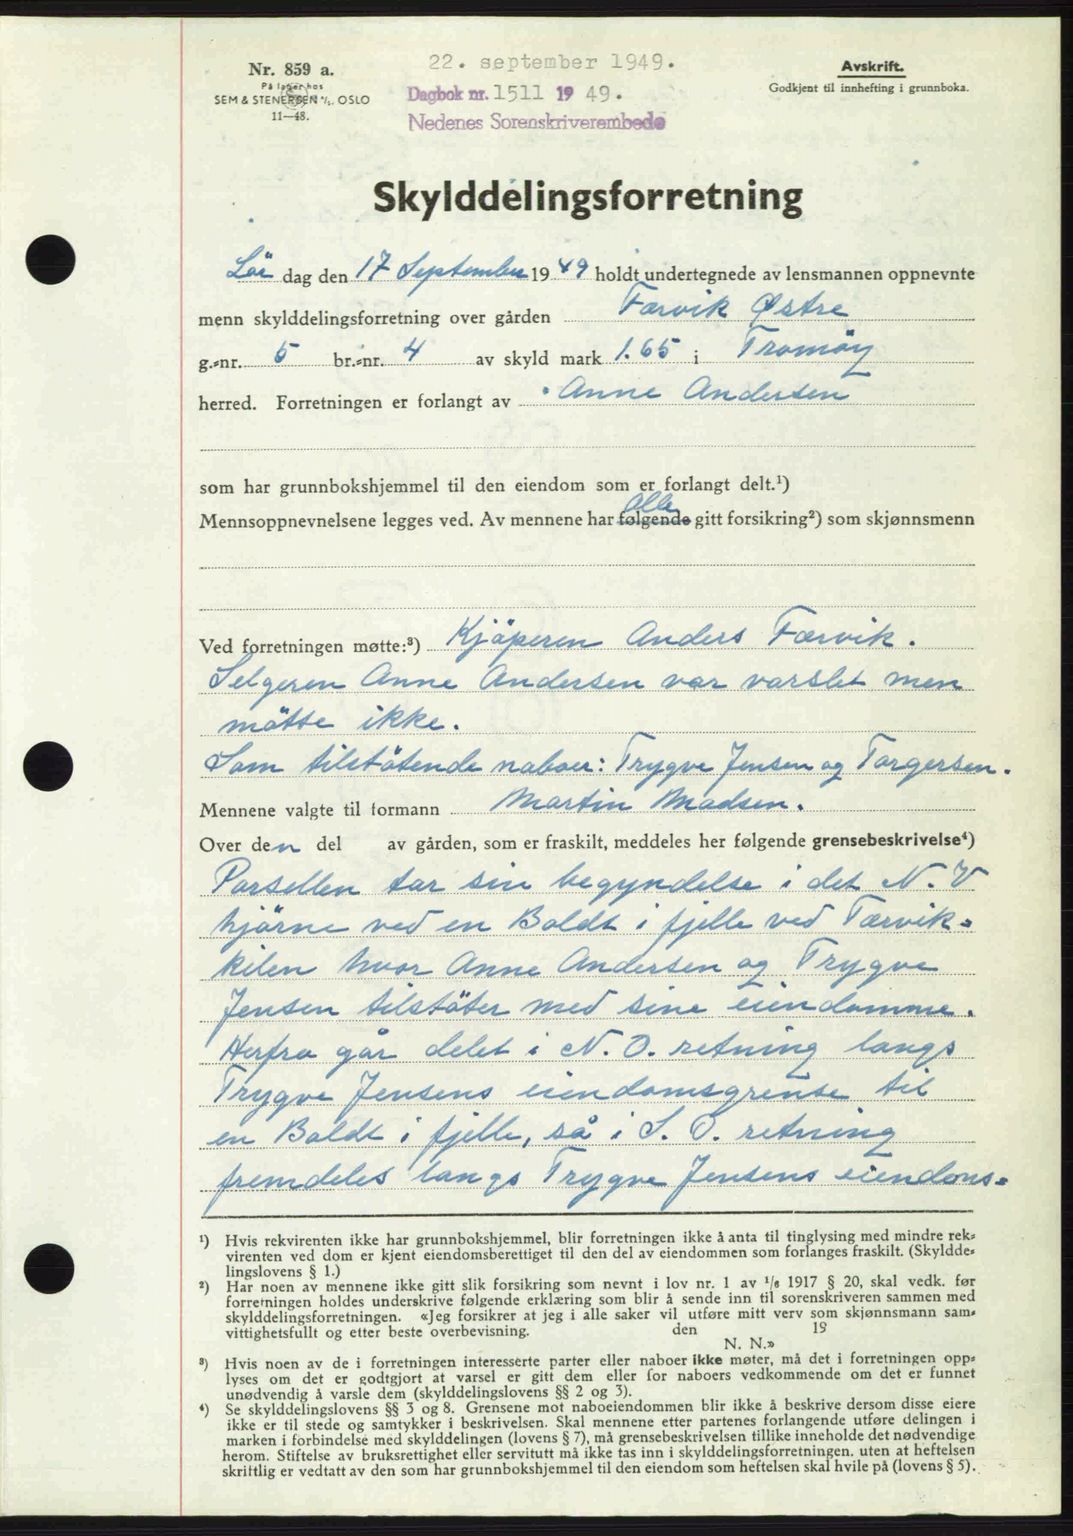 Nr. 859 a.
På lager hos
SEM & STENERSEN A/S. OSLO
11—48.
22. september 1949.
Dagbok nr. 1511 1949.
Nedenes Sorenskriverembede
Avskrift.
Godkjent til innhefting i grunnboka.
Skylddelingsforretning
Lör dag den 17 September 1949 holdt undertegnede av lensmannen oppnevnte
menn skylddelingsforretning over gården Færvik Østre
g.-nr. 5 br.-nr. 4 av skyld mark 1.65 i Tromöy
herred. Forretningen er forlangt av Anne Andersen
som har grunnbokshjemmel til den eiendom som er forlangt delt.¹)
alle
Mennsoppnevnelsene legges ved. Av mennene har følgende gitt forsikring²) som skjønnsmenn
Ved forretningen møtte:³) Kjöperen Anders Færvik.
Selgeren Anne Andersen var varslet men
mötte ikke.
Som tilstötende naboer: Trygve Jensen og Torgersen.
Mennene valgte til formann Martin Madsen.
Over den del av gården, som er fraskilt, meddeles her følgende grensebeskrivelse⁴)
Parsellen tar sin begyndelse i det N. V
hjörne ved en Boldt i fjelle ved Færvik-
kilen hvor Anne Andersen og Trygve
Jensen tilstöter med sine eiendomme.
Herfra går delet i N. O. retning langs
Trygve Jensens eiendomsgrense til
en Boldt i fjelle, så i S. O. retning
fremdeles langs Trygve Jensens eiendoms-
¹) Hvis rekvirenten ikke har grunnbokshjemmel, blir forretningen ikke å anta til tinglysing med mindre rek-
virenten ved dom er kjent eiendomsberettiget til den del av eiendommen som forlanges fraskilt. (Skyldde-
lingslovens § 1.)
²) Har noen av mennene ikke gitt slik forsikring som nevnt i lov nr. 1 av 1/6 1917 § 20, skal vedk. før
forretningen holdes underskrive følgende erklæring som blir å sende inn til sorenskriveren sammen med
skylddelingsforretningen. «Jeg forsikrer at jeg i alle saker vil utføre mitt verv som skjønnsmann sam-
vittighetsfullt og etter beste overbevisning. den 19
N. N.»
³) Hvis noen av de i forretningen interesserte parter eller naboer ikke møter, må det i forretningen opp-
lyses om det er godtgjort at varsel er gitt dem eller for naboers vedkommende om det er funnet
unødvendig å varsle dem (skylddelingslovens §§ 2 og 3).
⁴) Se skylddelingslovens §§ 3 og 8. Grensene mot naboeiendommen blir ikke å beskrive dersom disse eiere
ikke er til stede og samtykker i beskrivelsen. Skal mennene etter partenes forlangende utføre delingen i
marken i forbindelse med skylddelingen (lovens § 7), må grensebeskrivelsen tillike inneholde det nødvendige
herom. Stiftelse av bruksrettighet eller servitutt må ikke tas inn i skylddelingsforretningen, uten at heftelsen
skriftlig er vedtatt av den som har grunnbokshjemmel til den eiendom som heftelsen skal hvile på (lovens § 5).